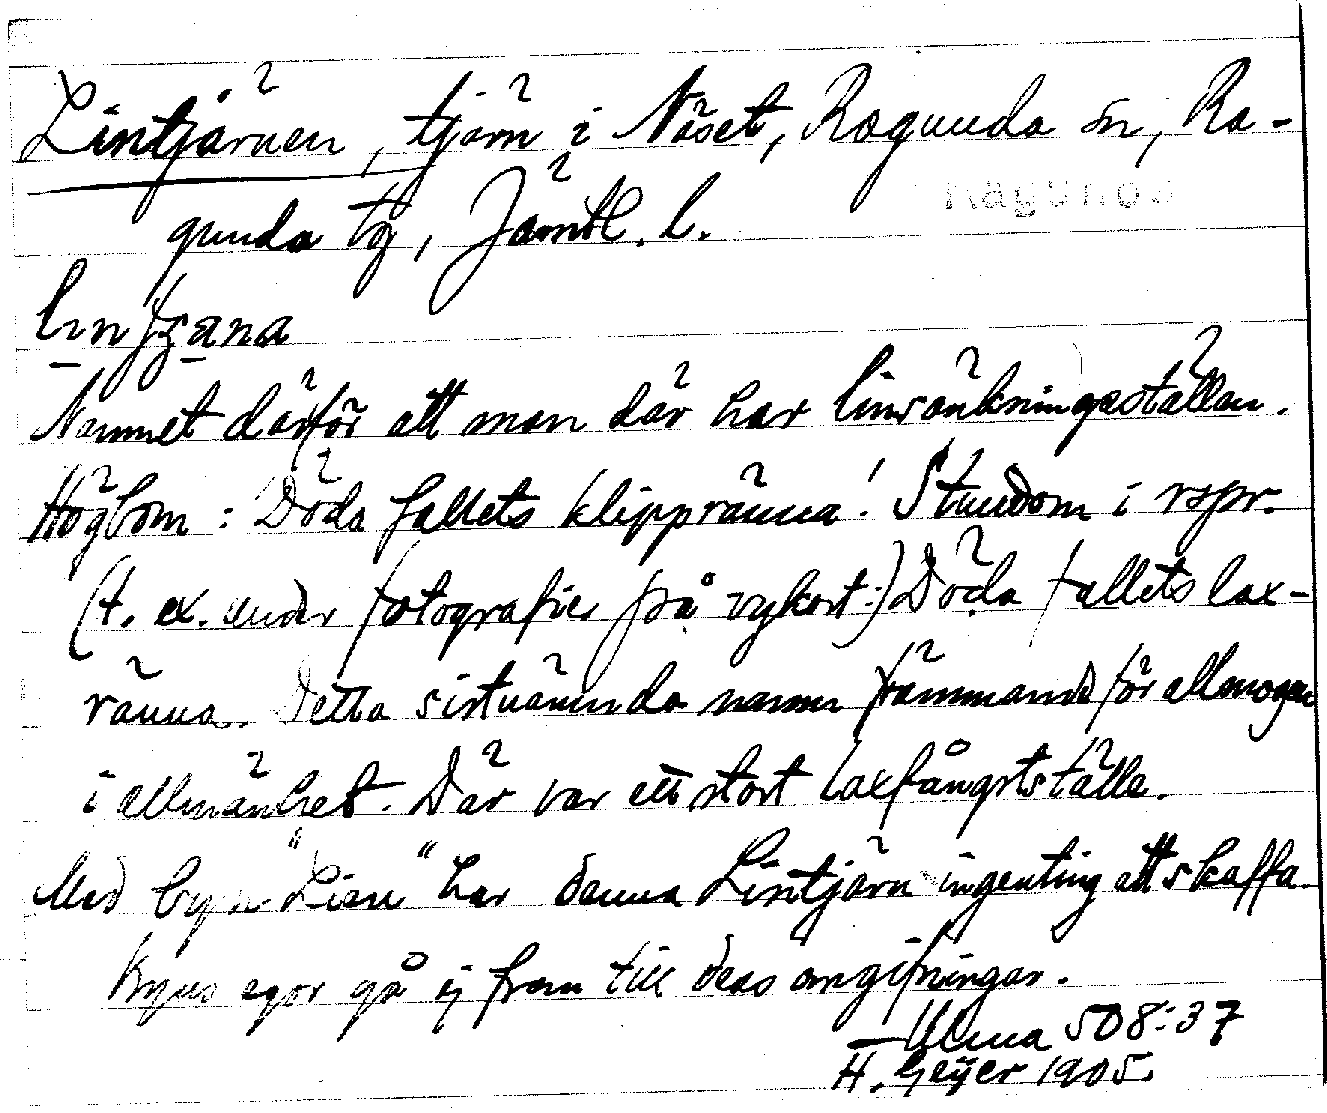 Lintjärnen, tjärn i Näset, Ragunda sn, Ra-
Ragunda
gunda tg, Jämtl. l.
Namnet därför att man där har linsänkningsställen.
Högbom: Döda fallets klippränna! Stundom i rspr.
(t. ex. under fotografier på vykort:) Döda fallets lax-
ränna. Detta sistnämnda namn främmande för allmogen
i allmänhet. Där var ett stort laxfångstställe.
Med byn "Lien" har denna Lintjärn ingenting att skaffa.
Byns egor gå ej fram till dess omgifningar.
Ulma 508:37
H. Geijer 1905.